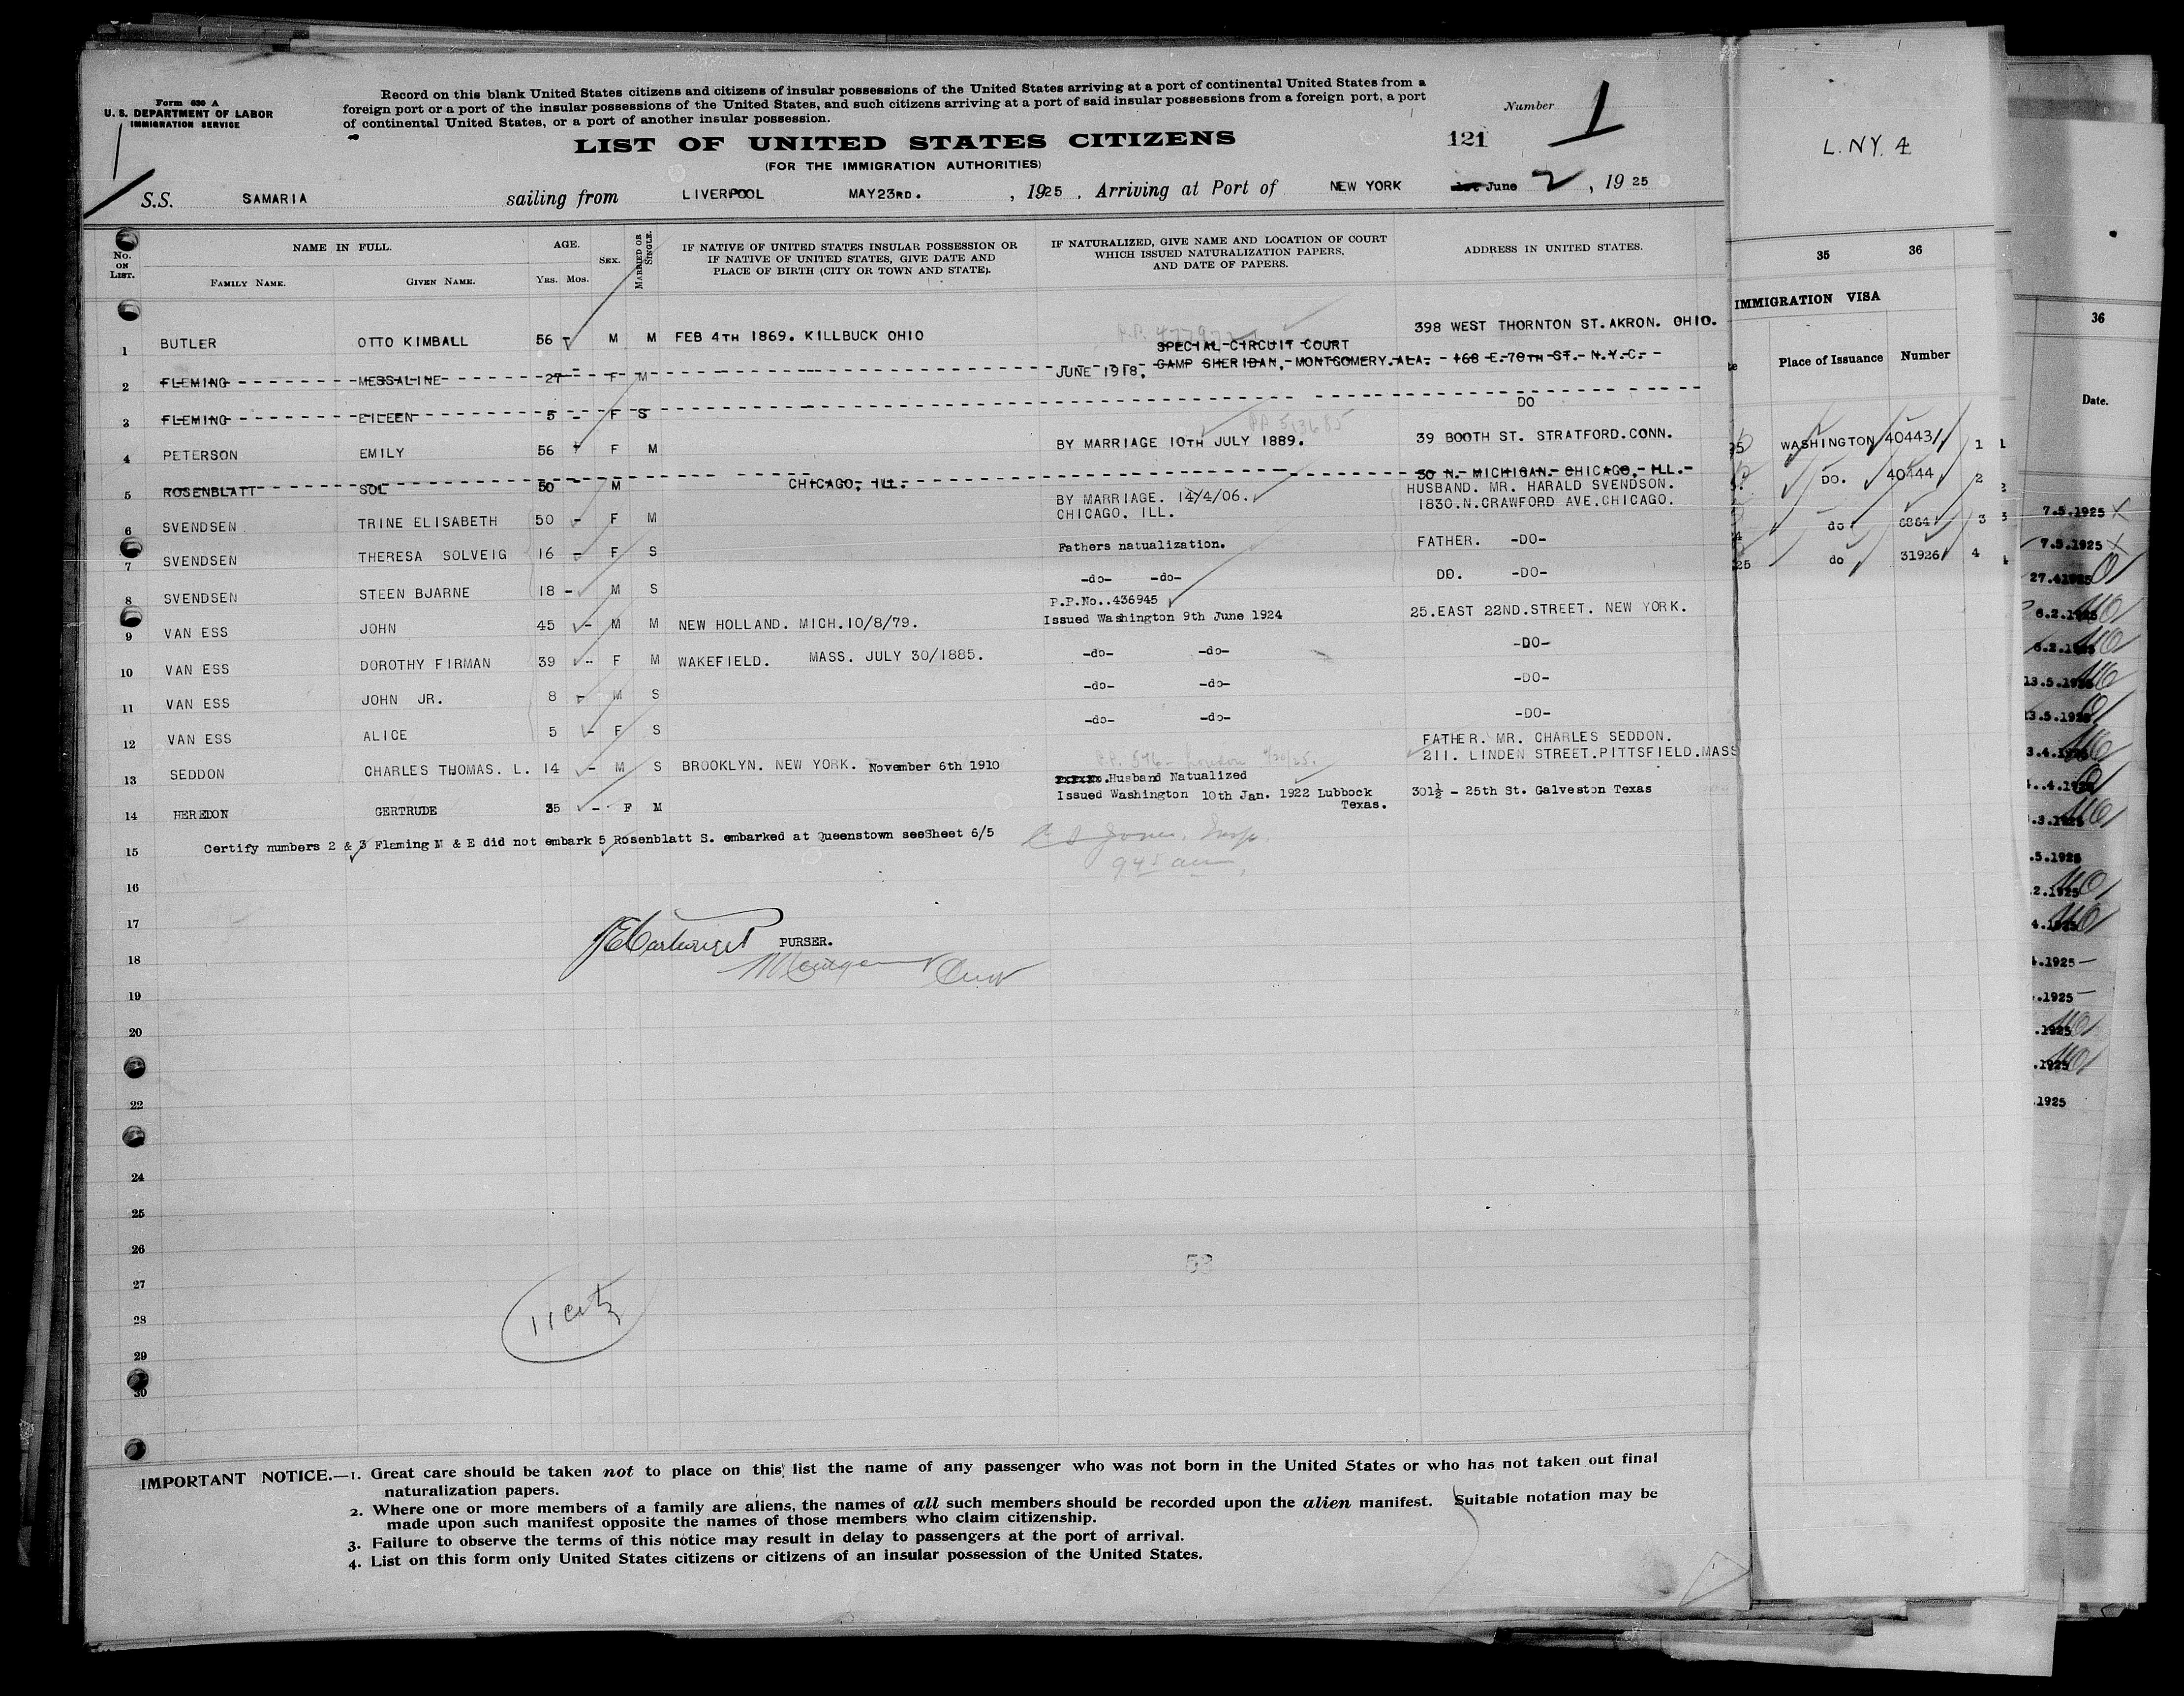 Form 630 A
U. S. DEPARTMENT OF LABOR
IMMIGRATION SERVICE
Record on this blank United States citizens and citizens of insular possessions of the United States arriving at a port of continental United States from a
foreign port or a port of the insular possessions of the United States, and such citizens arriving at a port of said insular possessions from a foreign port, a port
of continental United States, or a port of another insular possession.
Number 1
LIST OF UNITED STATES CITIZENS 121
(FOR THE IMMIGRATION AUTHORITIES)
S.S. SAMARIA sailing from LIVERPOOL MAY23RD. , 1925 , Arriving at Port of NEW YORK 1st June 2 , 19 25
No. ON LIST. NAME IN FULL. FAMILY NAME. GIVEN NAME. AGE. YRS. MOS. SEX. MARRIED OR SINGLE. IF NATIVE OF UNITED STATES INSULAR POSSESSION OR IF NATIVE OF UNITED STATES, GIVE DATE AND PLACE OF BIRTH (CITY OR TOWN AND STATE). IF NATURALIZED, GIVE NAME AND LOCATION OF COURT WHICH ISSUED NATURALIZATION PAPERS, AND DATE OF PAPERS. ADDRESS IN UNITED STATES.
1 BUTLER OTTO KIMBALL 56 - M M FEB 4TH 1869. KILLBUCK OHIO 398 WEST THORNTON ST. AKRON. OHIO.
SPECIAL CIRCUIT COURT
2 FLEMING MESSALINE 27 - F M JUNE 1918, CAMP SHERIDAN, MONTGOMERY. ALA. 168 E. 78TH ST. N.Y.C.
3 FLEMING EILEEN 5 - F S DO
PP 513685
4 PETERSON EMILY 56 - F M BY MARRIAGE 10TH JULY 1889. 39 BOOTH ST. STRATFORD.CONN.
5 ROSENBLATT SOL 50 - M CHICAGO, ILL. 30 N. MICHIGAN. CHICAGO, ILL.
6 SVENDSEN TRINE ELISABETH 50 - F M BY MARRIAGE. 14/4/06. CHICAGO. ILL. HUSBAND. MR. HARALD SVENDSON. 1830.N.CRAWFORD AVE.CHICAGO.
7 SVENDSEN THERESA SOLVEIG 16 - F S Fathers natualization. FATHER. -DO-
8 SVENDSEN STEEN BJARNE 18 - M S -do- -do- DO. -DO-
P.P.No..436945
9 VAN ESS JOHN 45 - M M NEW HOLLAND. MICH.10/8/79. Issued Washington 9th June 1924 25.EAST 22ND.STREET. NEW YORK.
10 VAN ESS DOROTHY FIRMAN 39 - F M WAKEFIELD. MASS. JULY 30/1885. -do- -do- -DO-
11 VAN ESS JOHN JR. 8 - M S -do- -do- -DO-
12 VAN ESS ALICE 5 - F S -do- -do- -DO-
FATHER. MR. CHARLES SEDDON.
13 SEDDON CHARLES THOMAS. L. 14 - M S BROOKLYN. NEW YORK. November 6th 1910 211. LINDEN STREET.PITTSFIELD.MASS
Husband Natualized
14 HEREDON GERTRUDE 35 - F M Issued Washington 10th Jan. 1922 Lubbock Texas. 301½ - 25th St. Galveston Texas
15 Certify numbers 2 & 3 Flaming M & E did not embark 5 Rosenblatt S. embarked at Queenstown seeSheet 6/5
945 am
16
17
PURSER.
18
19
20
22
24
25
26
53
27
11 citz
28
29
30
IMPORTANT NOTICE.—1. Great care should be taken not to place on this list the name of any passenger who was not born in the United States or who has not taken out final
naturalization papers.
2. Where one or more members of a family are aliens, the names of all such members should be recorded upon the alien manifest. Suitable notation may be
made upon such manifest opposite the names of those members who claim citizenship.
3. Failure to observe the terms of this notice may result in delay to passengers at the port of arrival.
4. List on this form only United States citizens or citizens of an insular possession of the United States.
L. NY. 4
35 36
IMMIGRATION VISA
Place of Issuance Number
WASHINGTON 40443 1
DO. 40444 2
do 6864 3
do 31926 4
36
Date.
7.5.1925
7.5.1925
27.4.1925
6.2.1925
6.2.1925
13.5.1925
13.5.1925
3.4.1925
4.1925
.3.1925
.5.1925
2.1925
4.1925
.1925
.1925
.1925
.1925
.1925